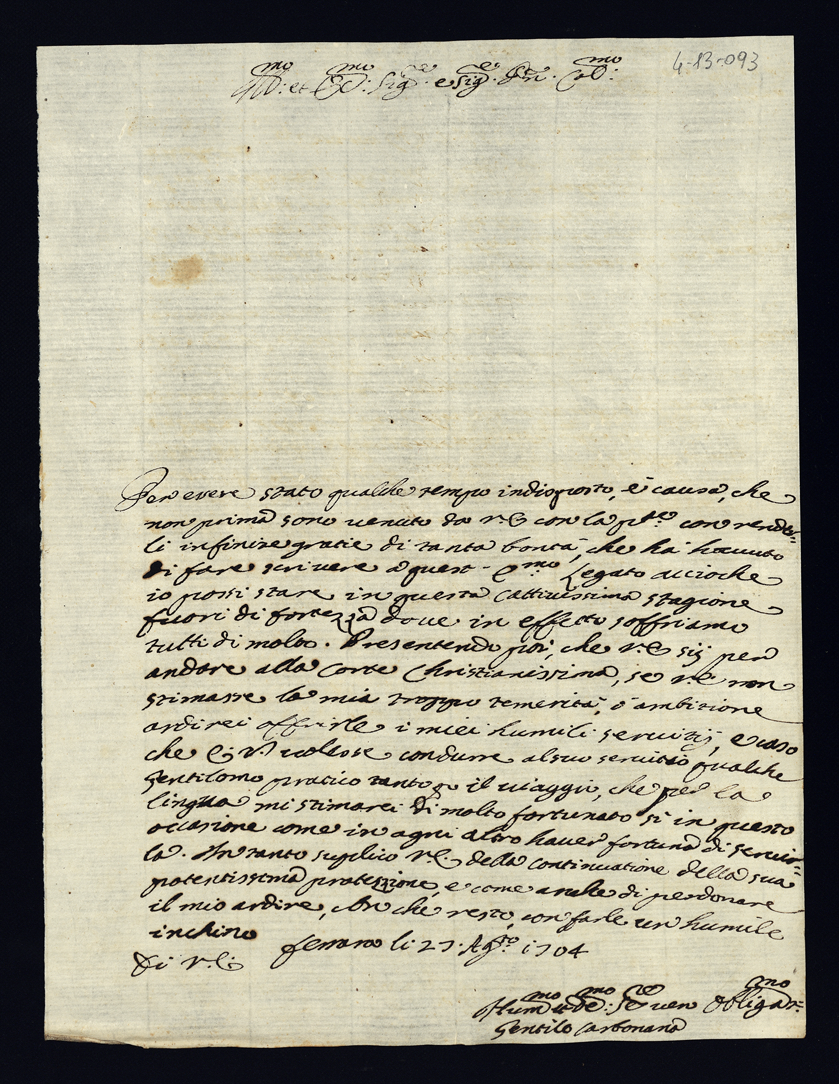 4-13-093
Ill:mo et Ecc:mo Sig:re e Sig:re Pn̄: Col:mo
Per evere stato qualche tempo indisposto, è causa, che
non prima sono venuto da V.E. con la pnte. con render=
li infinite gratie di tanta bontà, che ha havuto
di fare scrivere a quest- Emo Legato accioche
io possi stare in questa cattivissima stagione
fuori di fortezza dove in effetto soffriamo
tutti di molto. Presentendo poi, che V.E. sij per
andare alla Corte Christianissima, se V.E. non
stimasse la mia troppo temerità, ò ambitione
ardirei offrirle i miei humili servitij, e caso
che E.V. volesse condurre al suo servitio qualche
Gentilomo pratico tanto p il viaggio, che per la
lingua mi stimarei di molto fortunato si in questo
occasione come in ogni altro haver fortuna di servir=
la. In tanto suplico V.E. della continuatione della sua
potentissima protezzione, e come anche di perdonare
il mio ardire, con che resto, con farle un humile
inchino
Di V.E. ferrara li 27. Agto 1704
Hummo de:mo Se ven Obligat:mo
Gentile Carbonana